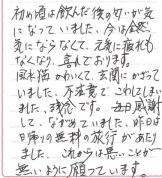 初め頃は飲んだ後の匂いが気
になっていました、今は全然
気にならなくて、元気に疲れも
なくなり、喜んでおります。
風水猫かわいくて、玄関にかざって
いました、不注意でこわしてしまい
ました、残念です。感謝
して、なぐさめていました、昨日は
日帰りの無料の旅行があたり
ました、これからは悪いことが
無いように願っています。